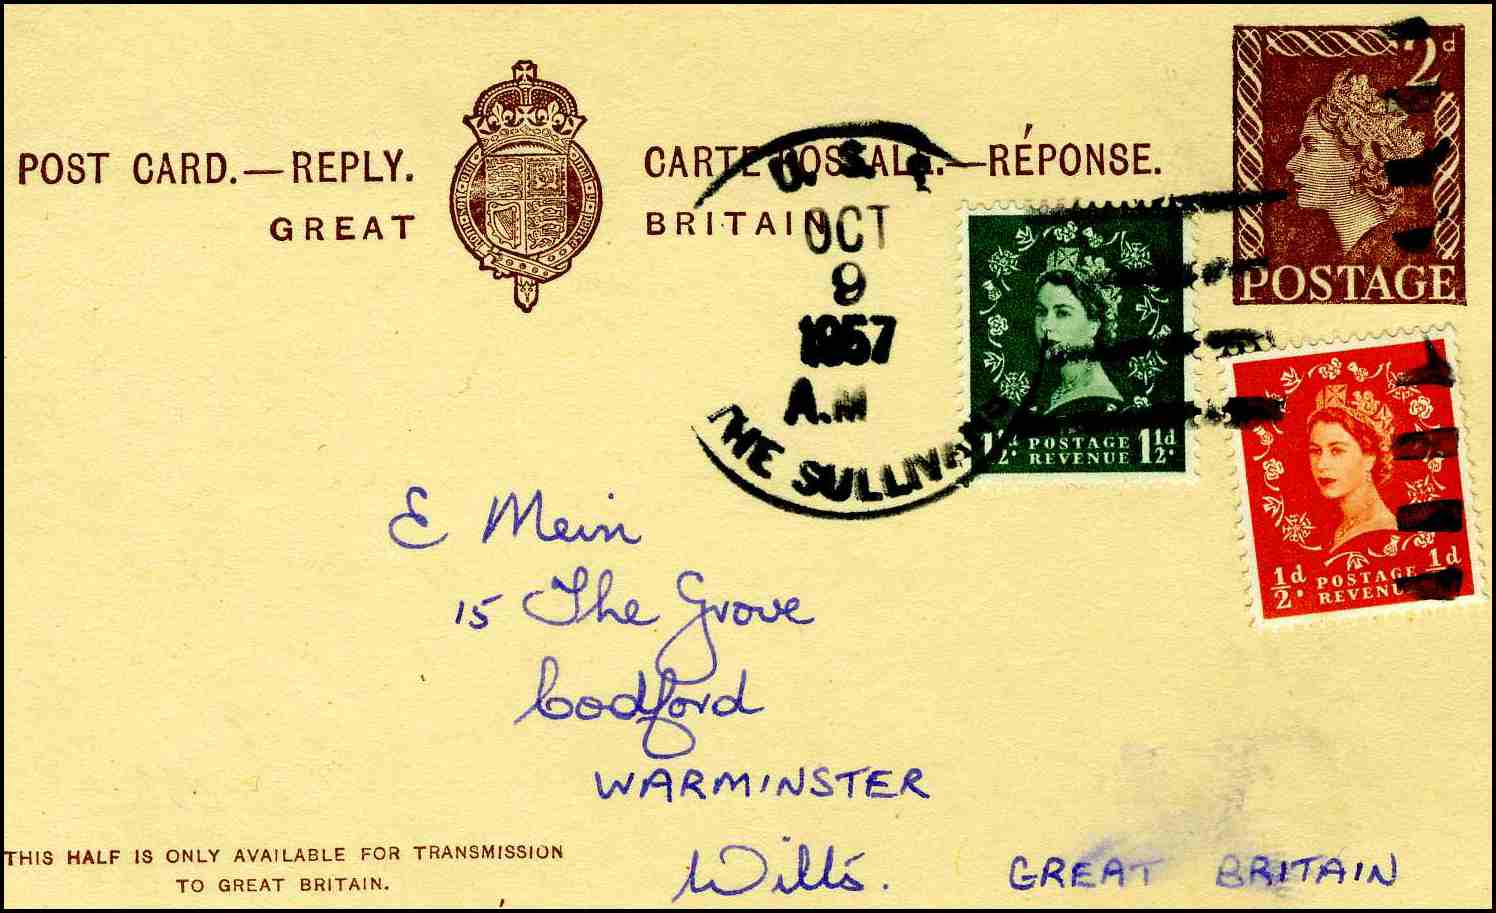 POST CARD.—REPLY.
CARTE POSTALE.—RÉPONSE.
GREAT
BRITAIN
2d
POSTAGE
U.S.
OCT
9
1957
A.M
THE SULLIVANS
1½d. POSTAGE REVENUE 1½d.
½d. POSTAGE REVENUE ½d
E Mein
15 The Grove
Codford
WARMINSTER
Wilts.
GREAT BRITAIN
THIS HALF IS ONLY AVAILABLE FOR TRANSMISSION
TO GREAT BRITAIN.